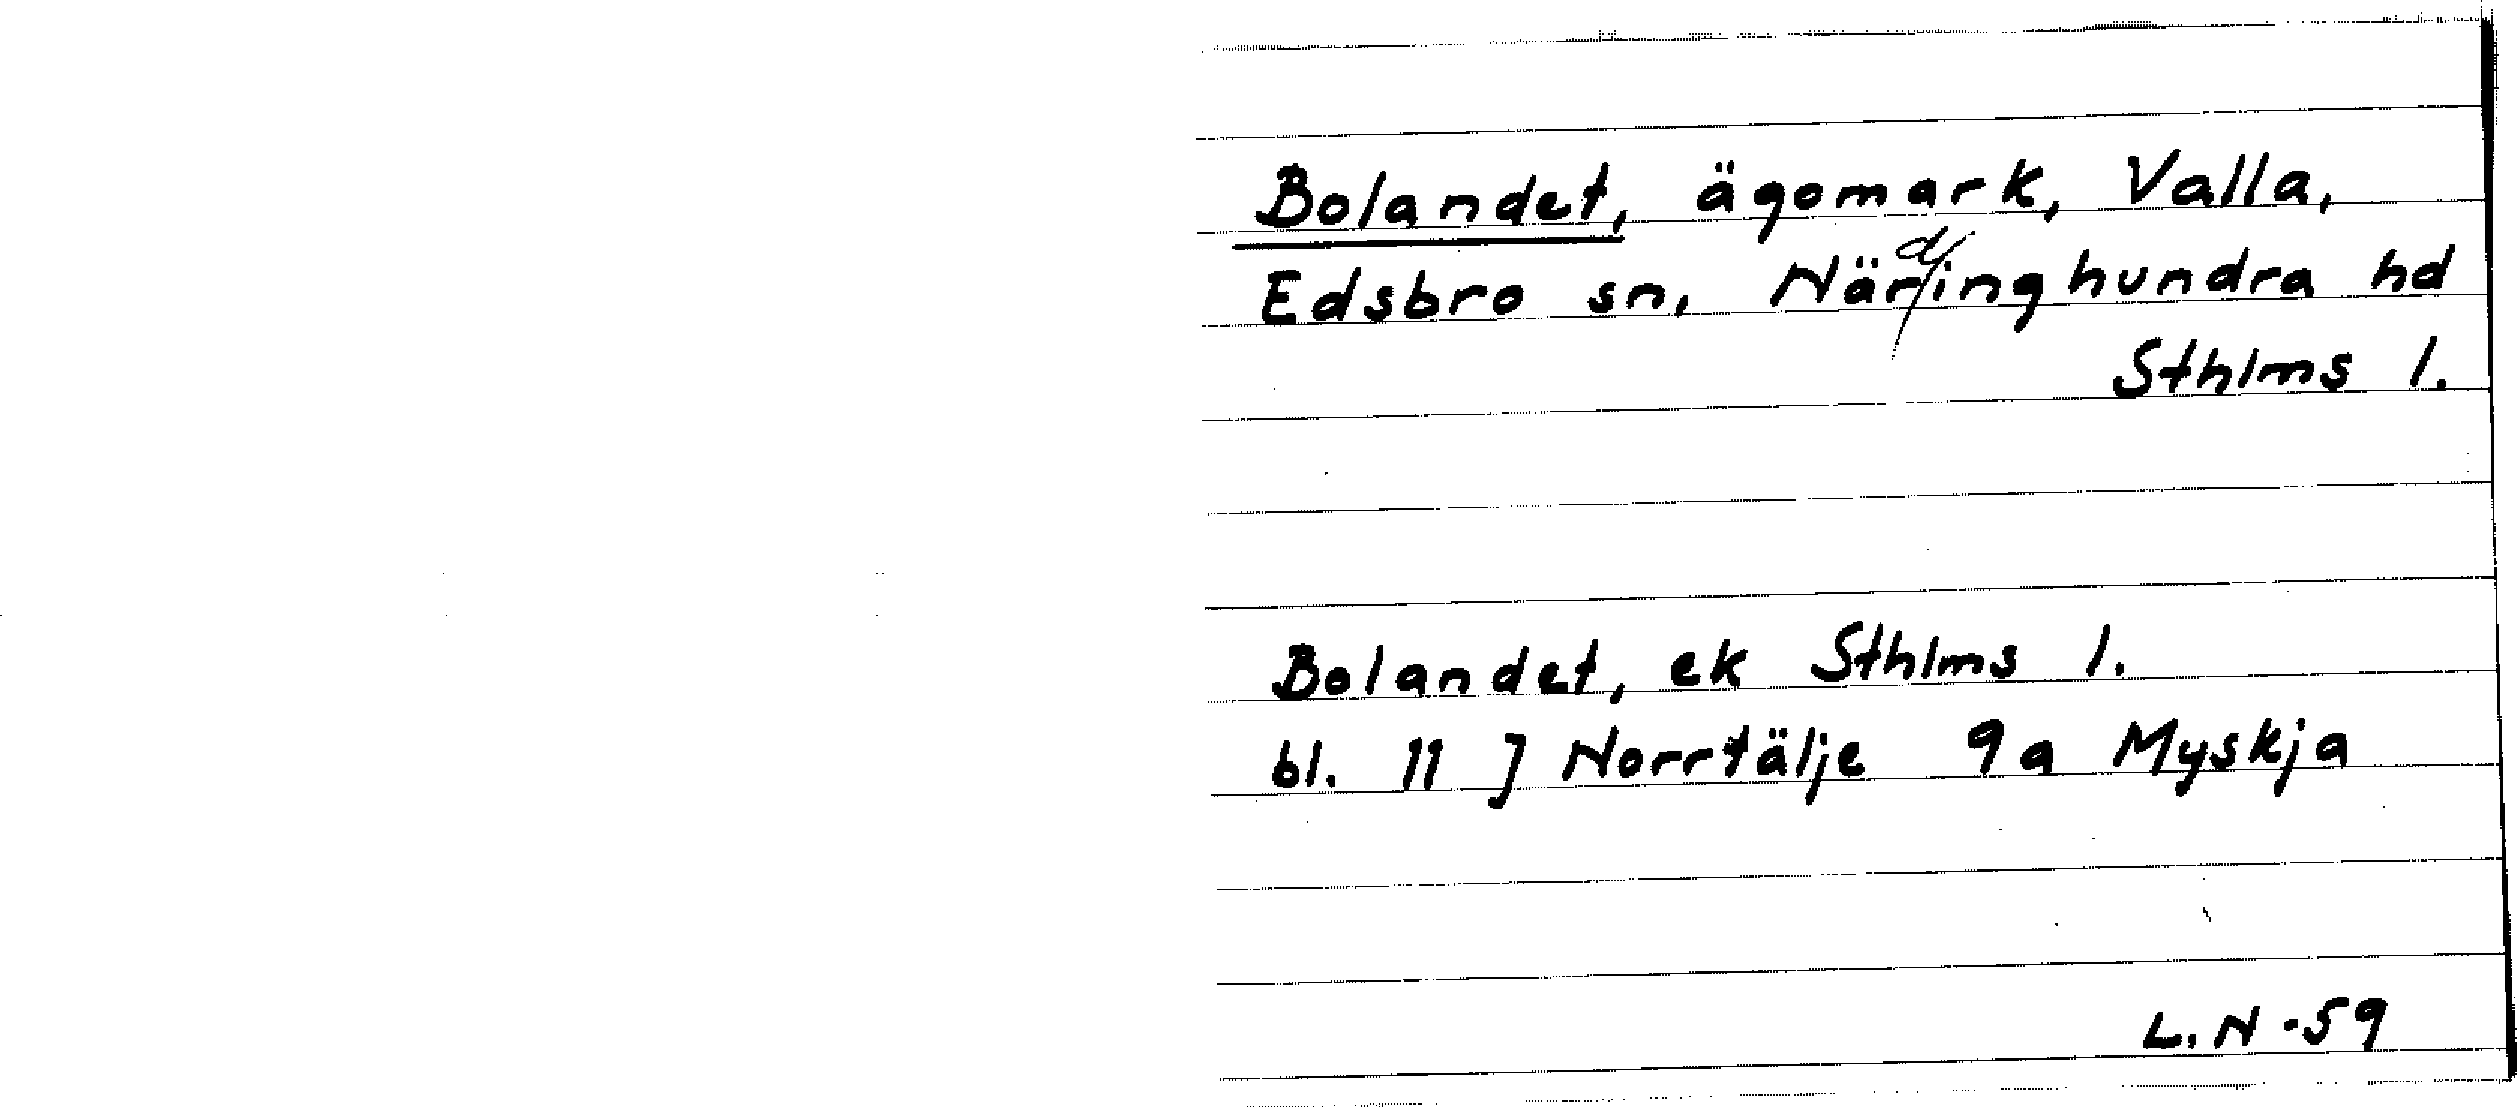 Bolandet, ägomark, Valla,
Edsbro sn, Närdinghundra hd
Sthlms l.
Bolandet, ek Sthlms l.
bl. 11 J Norrtälje 9a Myskja
L.N -59